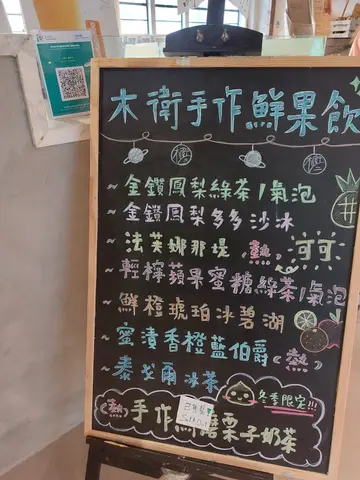 木衛手作鮮果飲
木衛二
木衛三
~金鑽鳳梨綠茶/氣泡
~金鑽鳳梨多多沙冰
~法芙娜那堤(熱)可可
~輕檸蘋果蜜糖綠茶/氣泡
~鮮橙琥珀冰碧湖
~蜜漬香橙藍伯爵(熱)
~泰戈爾冰茶
冬季限定!!!
(熱)手作
磨栗子奶茶
Sold Out